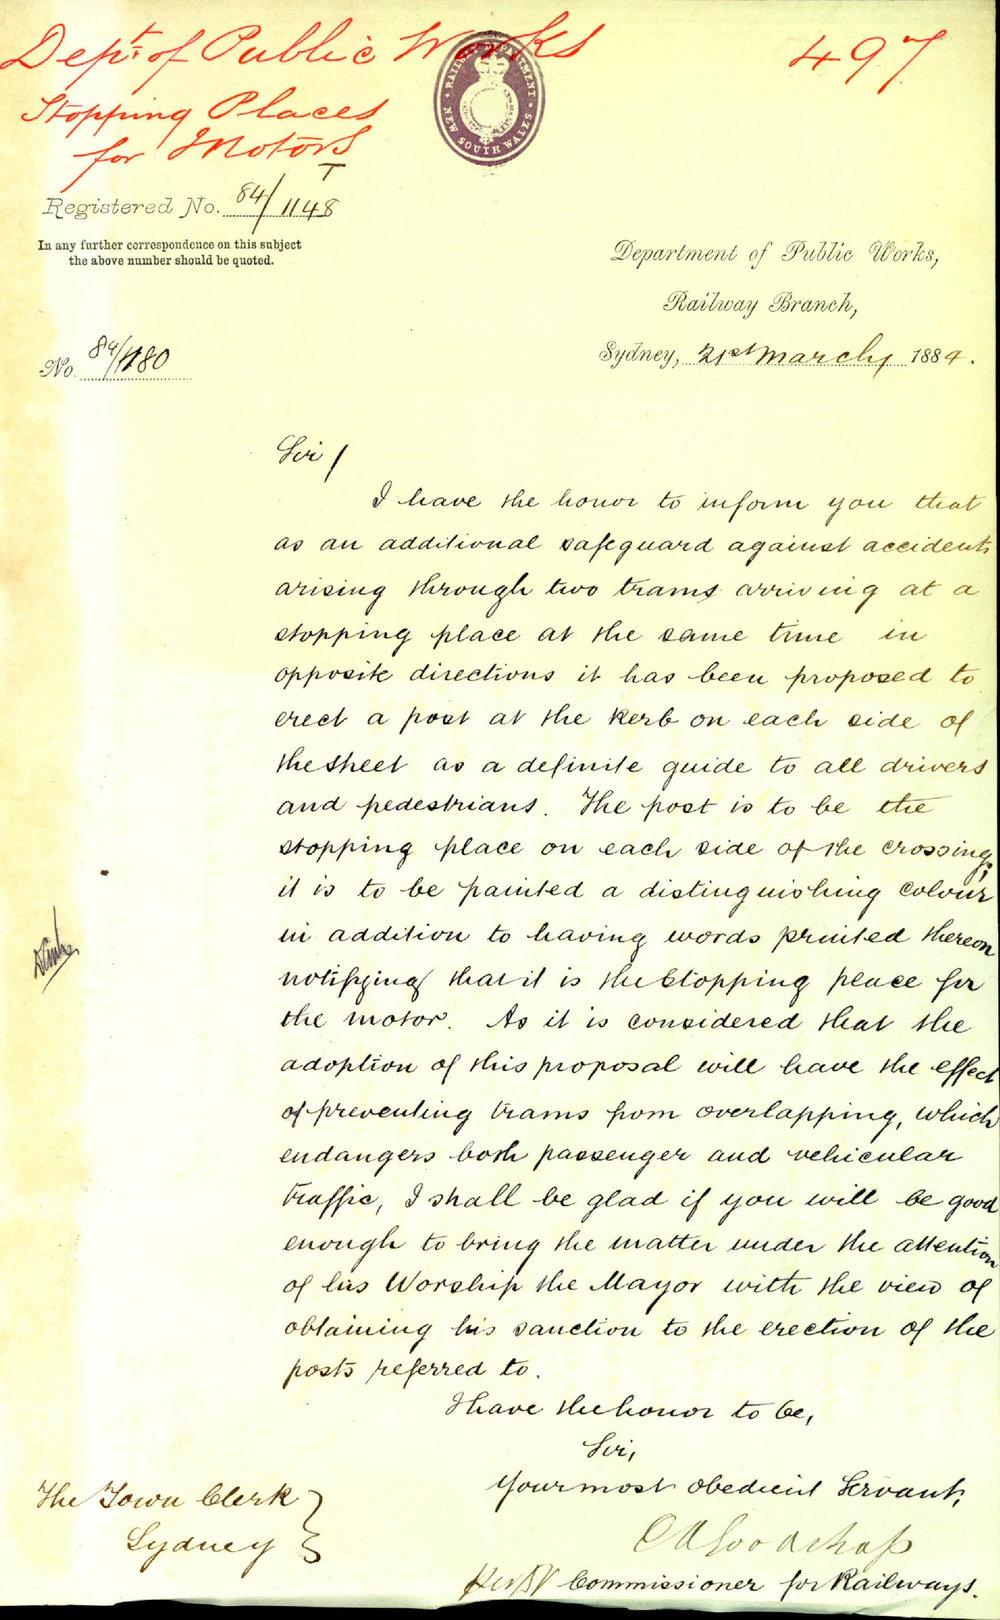 Dept. of Public Works
497
Stopping Places
for Motors
RAILWAY DEPARTMENT
NEW SOUTH WALES
T
Registered No. 84/1148
In any further correspondence on this subject
the above number should be quoted.
Department of Public Works,
Railway Branch,
Sydney, 21st March, 1884.
No. 84/1180
Sir/
I have the honor to inform you that
as an additional safeguard against accidents
arising through two trams arriving at a
stopping place at the same time in
opposite directions it has been proposed to
erect a post at the kerb on each side of
the street as a definite guide to all drivers
and pedestrians. The post is to be the
stopping place on each side of the crossing,
it is to be painted a distinguishing colour
in addition to having words printed thereon
notifying that it is the stopping place for
the motor. As it is considered that the
adoption of this proposal will have the effect
of preventing trams from overlapping, which
endangers both passenger and vehicular
traffic, I shall be glad if you will be good
enough to bring the matter under the attention
of his Worship the Mayor with the view of
obtaining his sanction to the erection of the
posts referred to.
I have the honor to be,
Sir,
Your most obedient Servant,
The Town Clerk
Sydney
Ch A Goodchap
Commissioner for Railways.